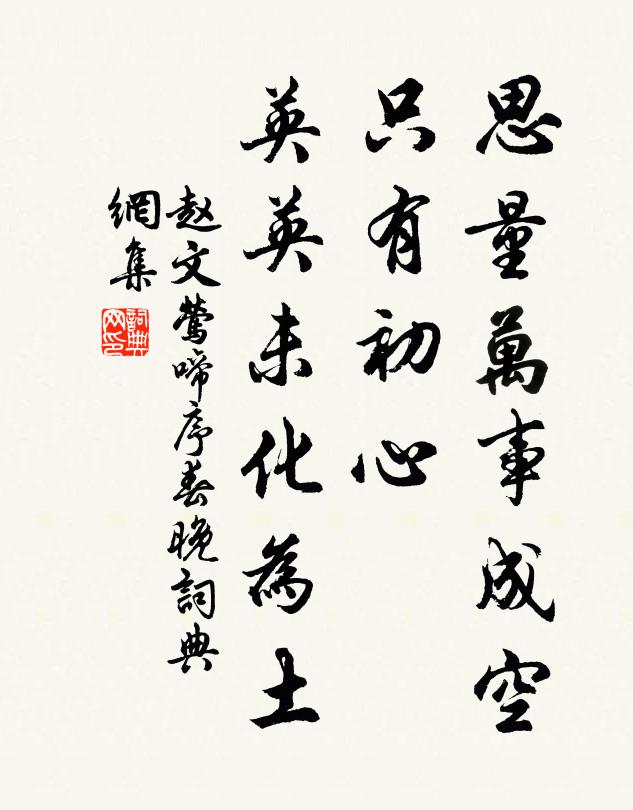 思量萬事成空
只有初心
英英未化為土
赵文鶯啼序春晚詞典
網集
詞典网印